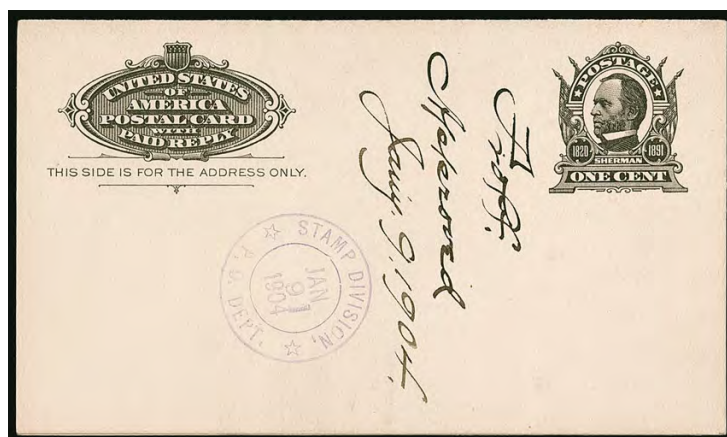 UNITED STATES
OF
AMERICA
POSTAL CARD
WITH
PAID REPLY
THIS SIDE IS FOR THE ADDRESS ONLY.
POSTAGE
1820 1891
SHERMAN
ONE CENT
Approved
Jany. 9, 1904.
STAMP DIVISION,
P. O. DEPT.
JAN
9
1904